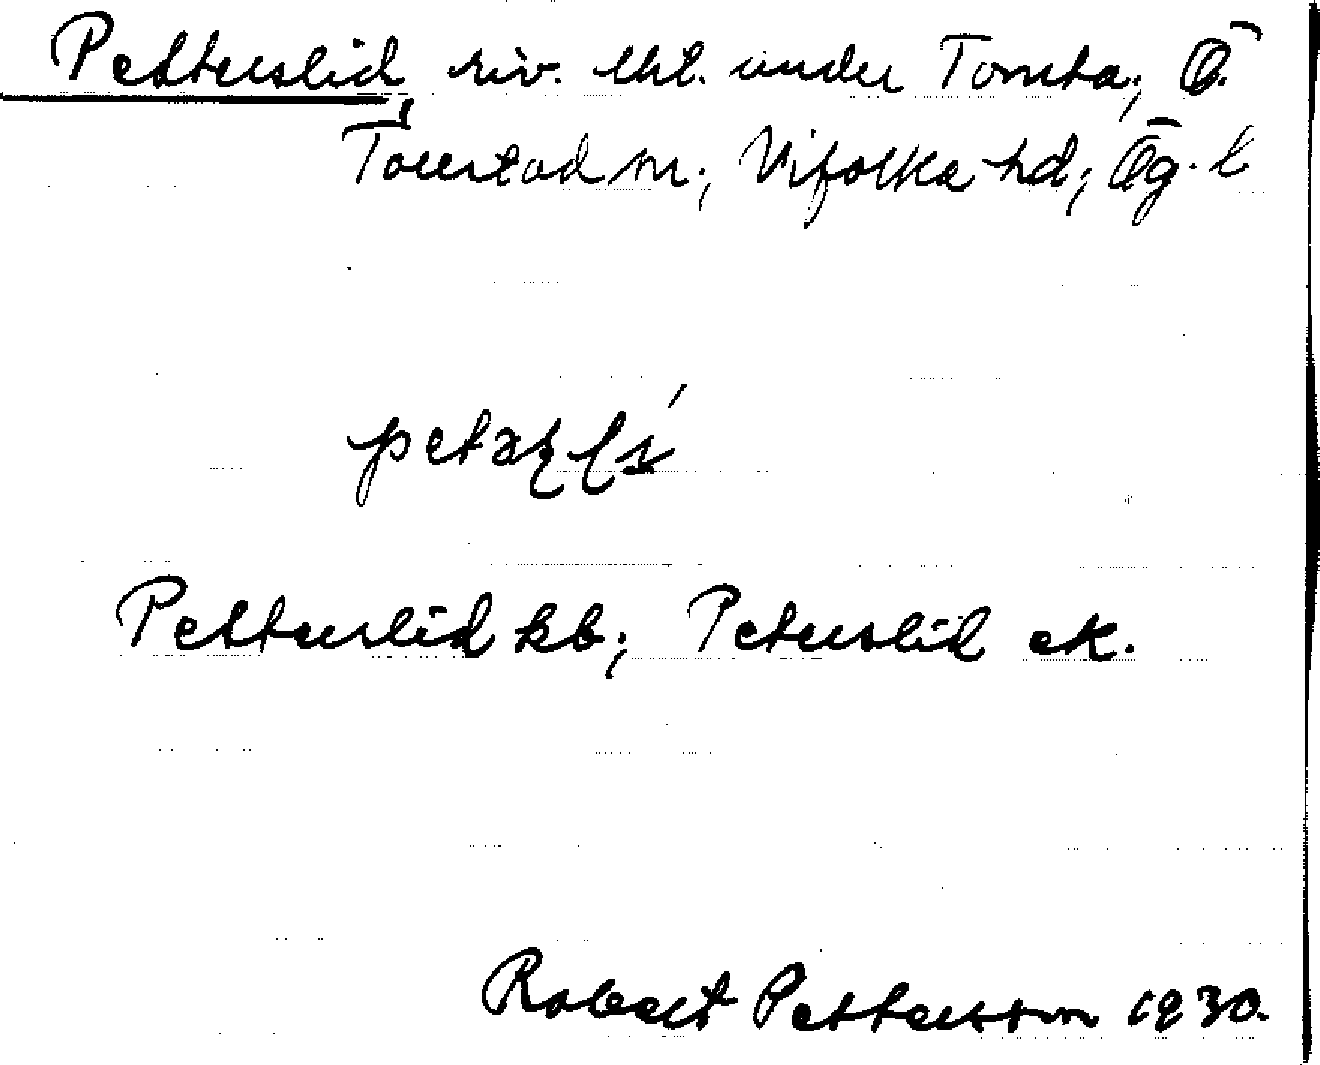 Petterslid, riv. lht. under Tomta, Ö.
Tollstad sn, Vifolka hd, Ög. l
Petterslid kb; Peterslid ek.
Robert Pettersson 1930.